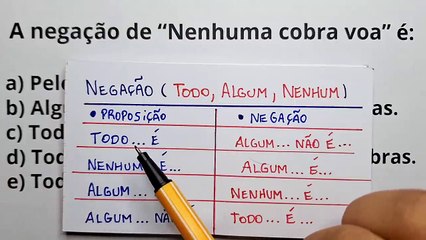 A negação de “Nenhuma cobra voa” é:
a) Pel
b) Alg as.
c) Tod
d) Tod bras.
e) Tod
NEGAÇÃO ( TODO, ALGUM, NENHUM )
• PROPOSIÇÃO • NEGAÇÃO
TODO... É ALGUM... NÃO É...
NENHUM É... ALGUM... É...
ALGUM... NENHUM... É...
ALGUM... NÃ É... TODO... É...